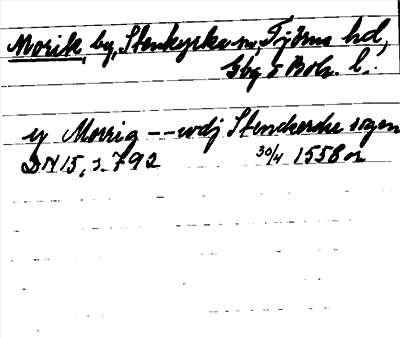 Morik, by, Stenkyrka sn, Tjörns hd,
Gbg o Boh. l.
y Morrig -- wdj Stenckercke sogen
DN 15, s. 792 30/4 1558 or